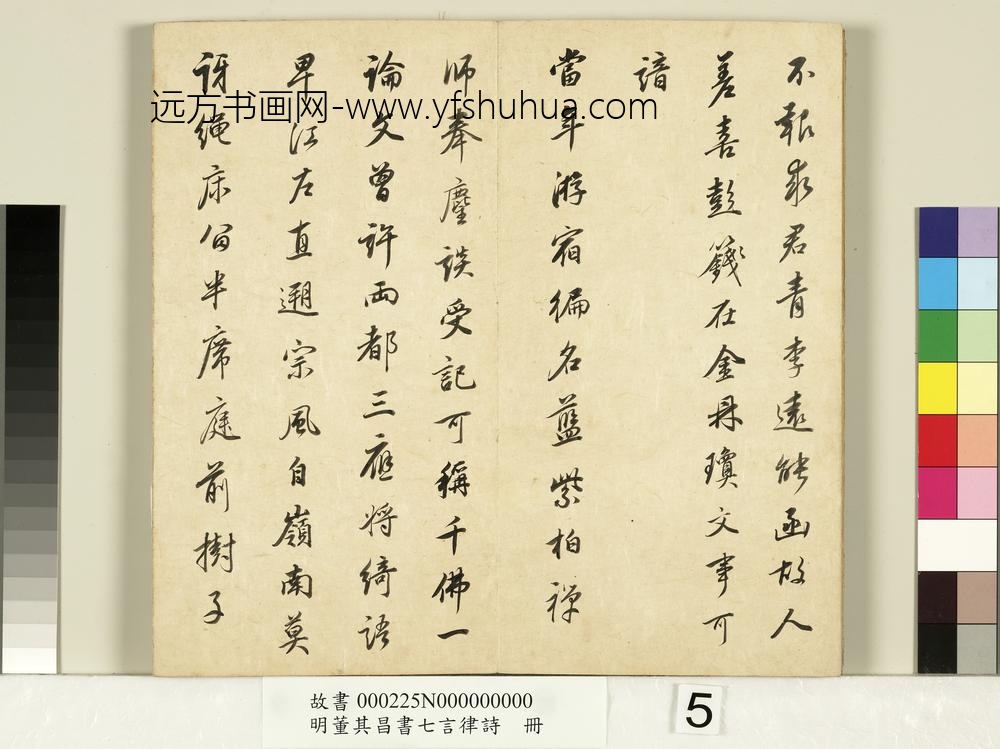 不報求君青李遠能函故人
差喜彭籛在金丹瓊文事可
諳
當年游宿徧名藍紫柏禪
師奉麈談受記可稱千佛一
論文曾許兩都三應將綺語
卑江左直遡宗風自嶺南莫
訝繩床留半席庭前樹子
远方书画网-www.yfshuhua.com
故書 000225N000000000
明董其昌書七言律詩 冊
5